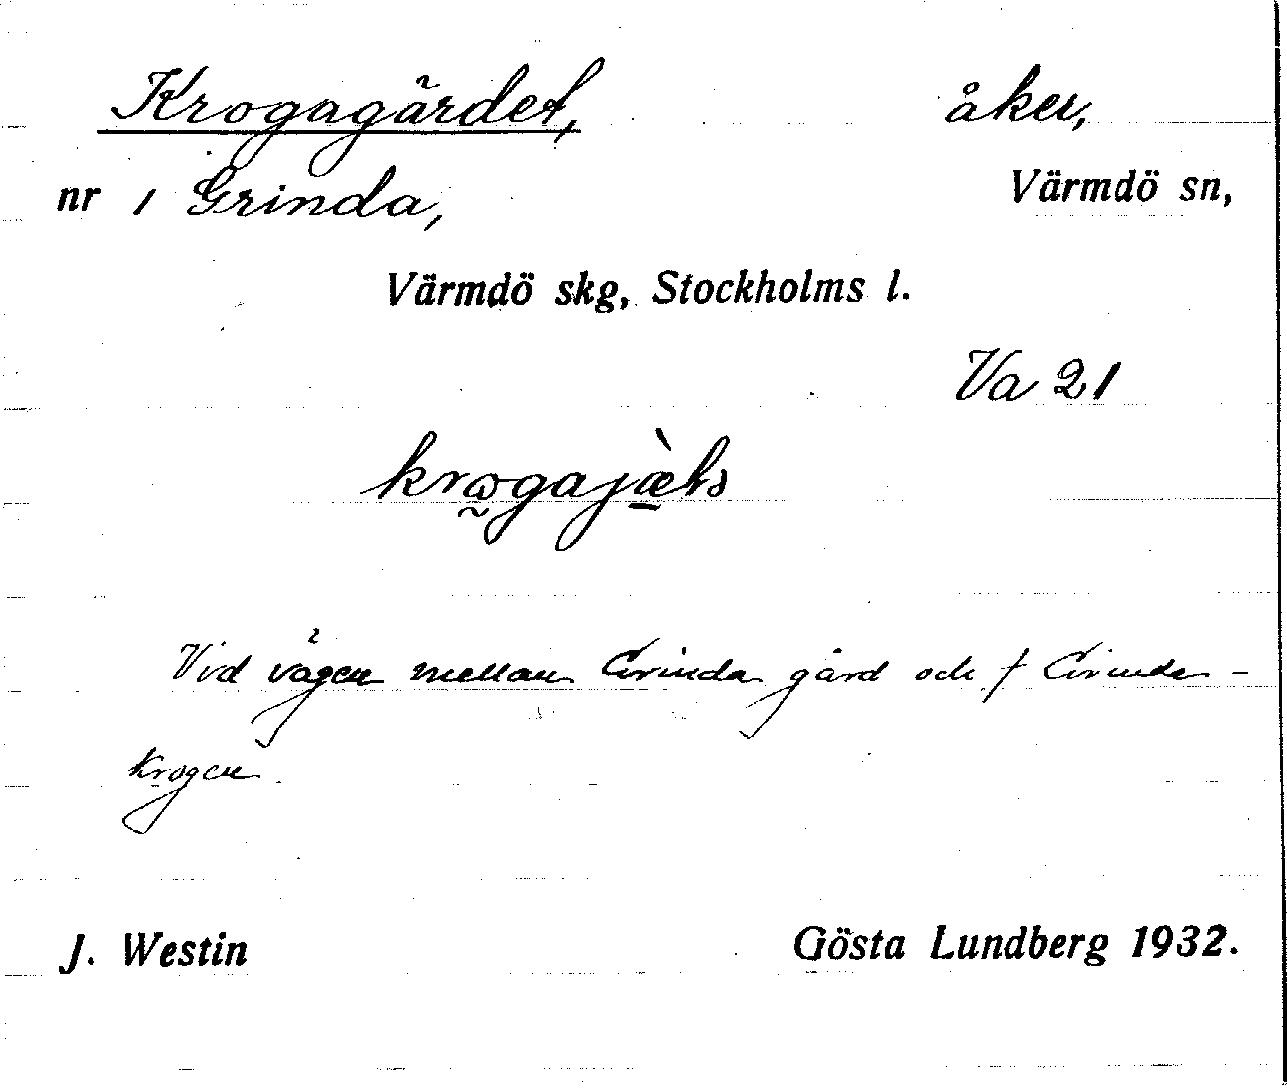 Krogagärdet, åker,
nr 1 Grinda, Värmdö sn,
Värmdö skg, Stockholms l.
Va 21
Vid vägen mellan Grinda gård och f Grinda-
krogen.
J. Westin Gösta Lundberg 1932.